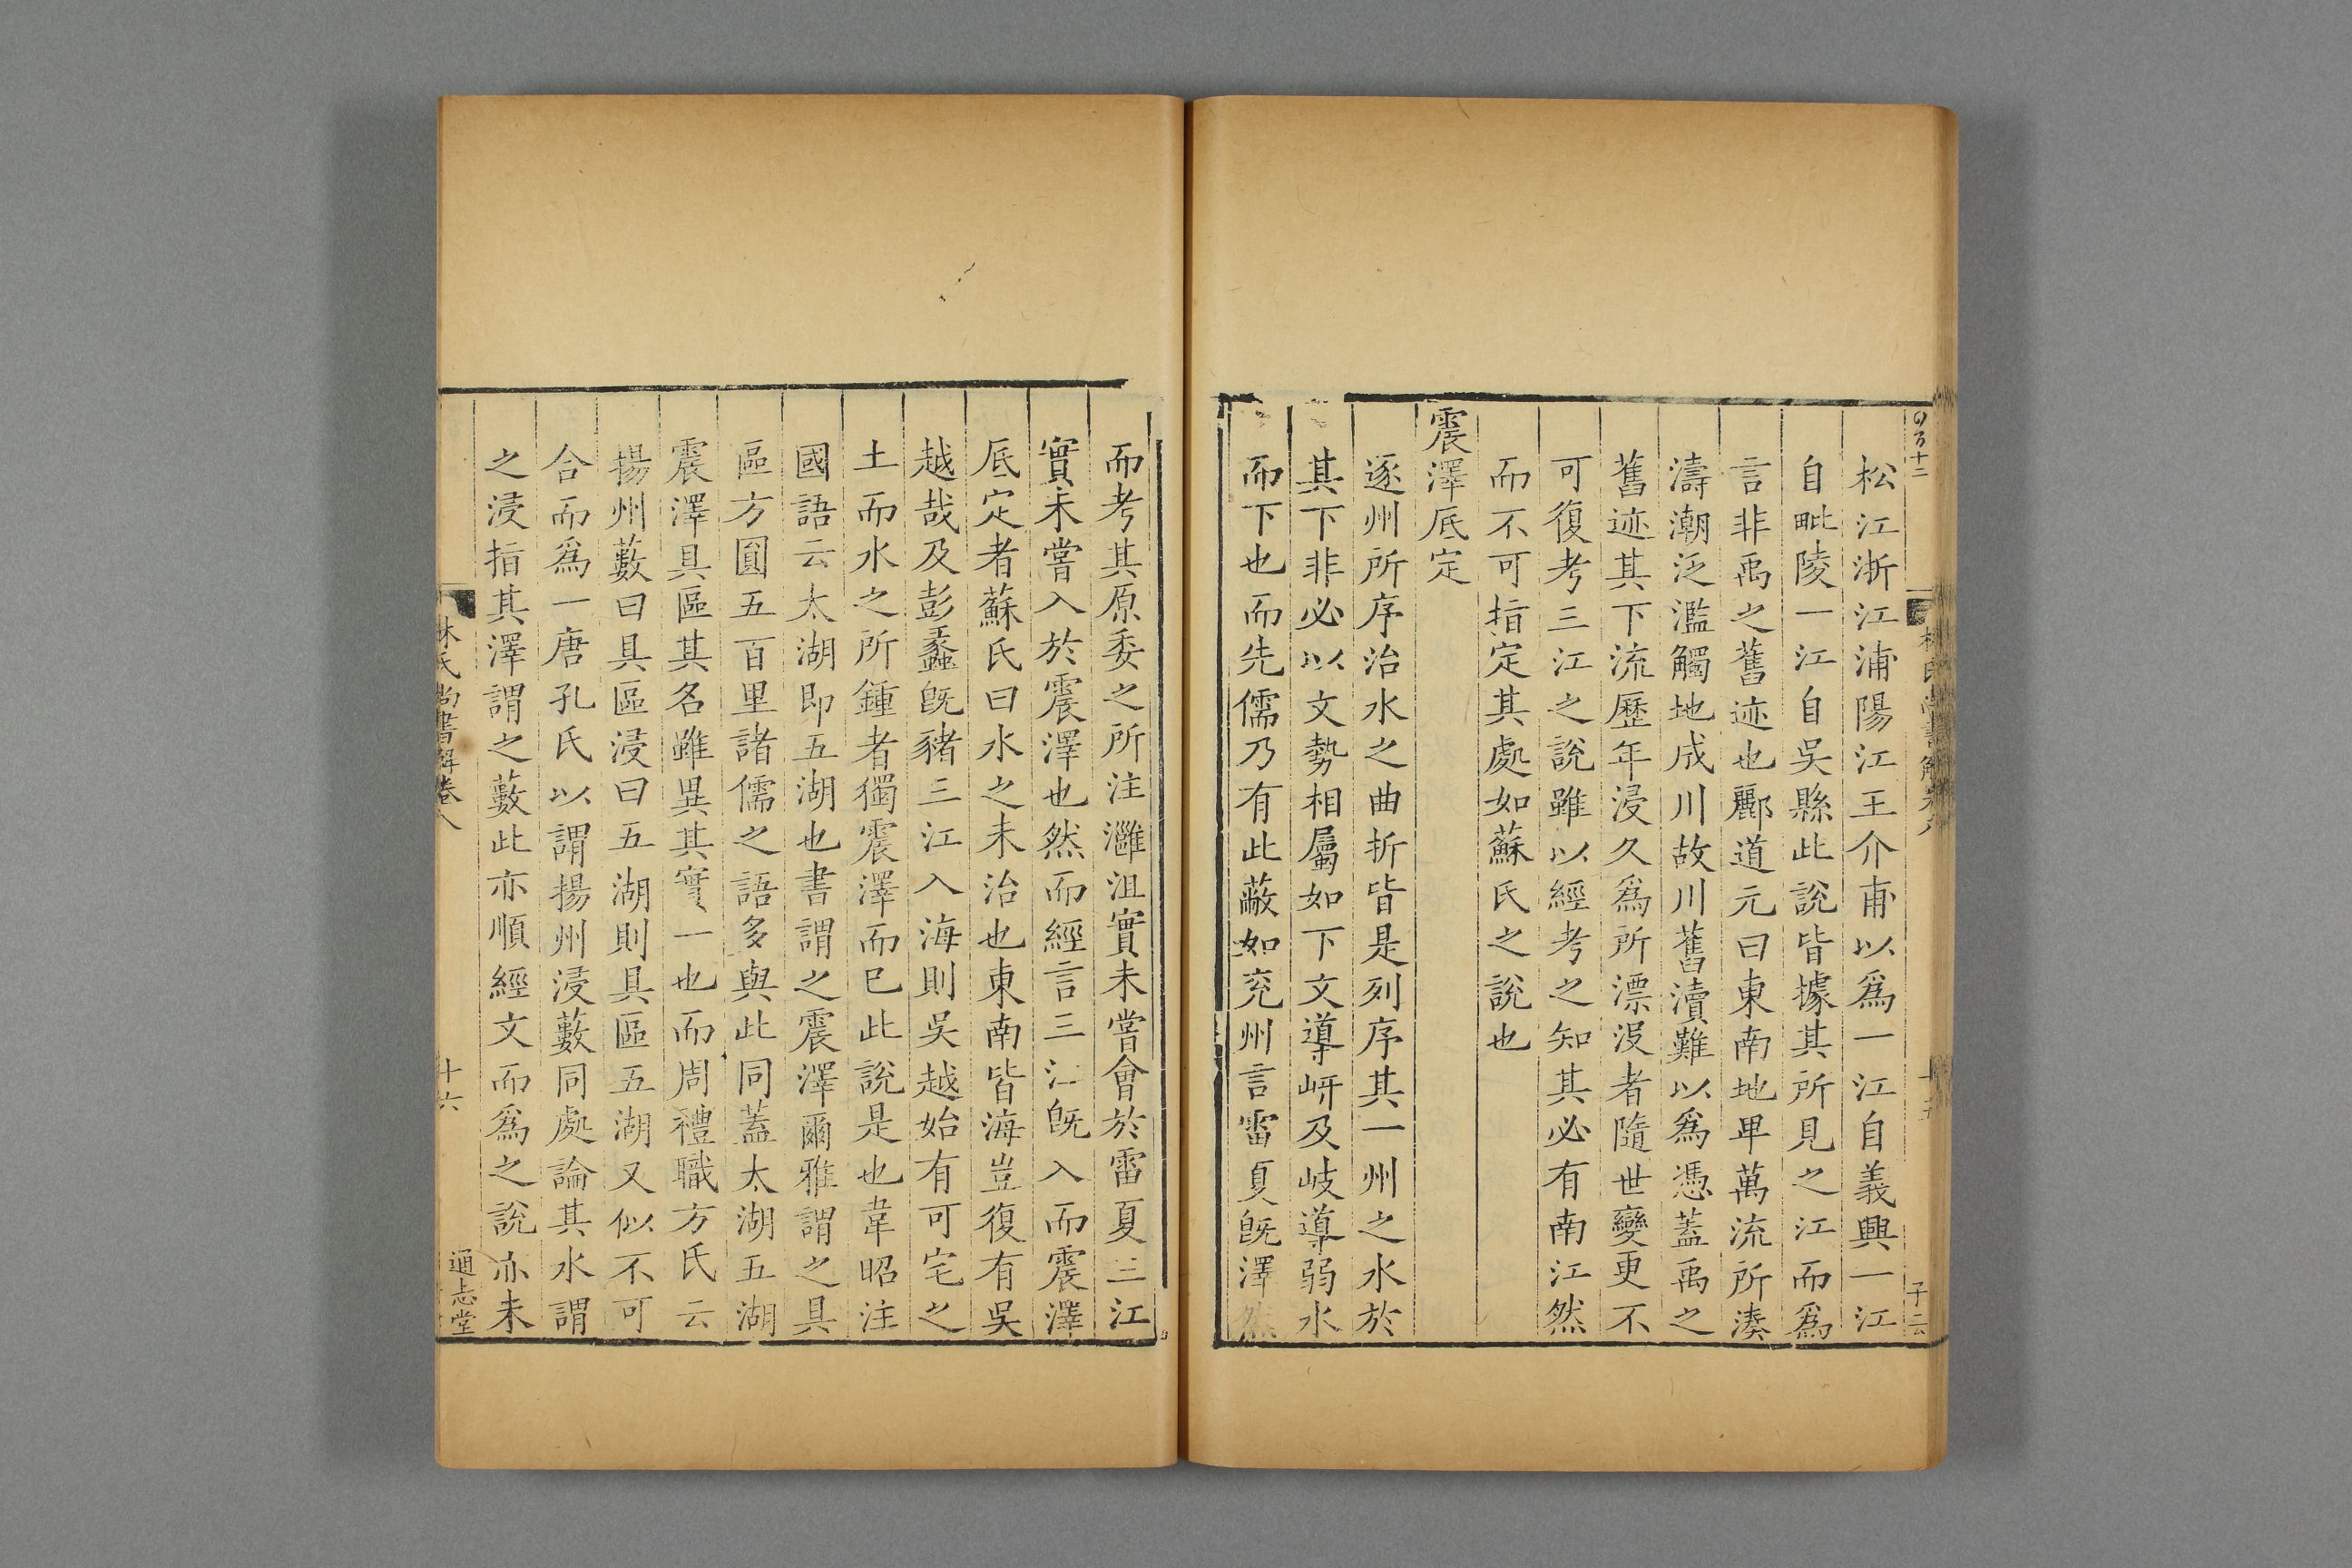 松江浙江浦陽江王介甫以爲一江自義興一江
自毗陵一江自吳縣此說皆據其所見之江而爲
言非禹之舊迹也酈道元曰東南地卑萬流所湊
濤潮泛濫觸地成川故川舊瀆難以爲憑蓋禹之
舊迹其下流歷年浸久爲所漂沒者隨世變更不
可復考三江之說雖以經考之知其必有南江然
而不可指定其處如蘇氏之說也
震澤厎定
逐州所序治水之曲折皆是列序其一州之水於
其下非必以文勢相屬如下文導岍及岐導弱水
而下也而先儒乃有此蔽如兖州言雷夏旣澤然
而考其原委之所注灉沮實未嘗會於雷夏三江
實未嘗入於震澤也然而經言三江旣入而震澤
厎定者蘇氏曰水之未治也東南皆海豈復有吳
越哉及彭蠡旣豬三江入海則吳越始有可宅之
土而水之所鍾者獨震澤而已此說是也韋昭注
國語云太湖即五湖也書謂之震澤爾雅謂之具
區方圓五百里諸儒之語多與此同蓋太湖五湖
震澤具區其名雖異其實一也而周禮職方氏云
揚州藪曰具區浸曰五湖則具區五湖又似不可
合而爲一唐孔氏以謂揚州浸藪同處論其水謂
之浸指其澤謂之藪此亦順經文而爲之說亦未
林氏尚書解卷八
十六
通志堂